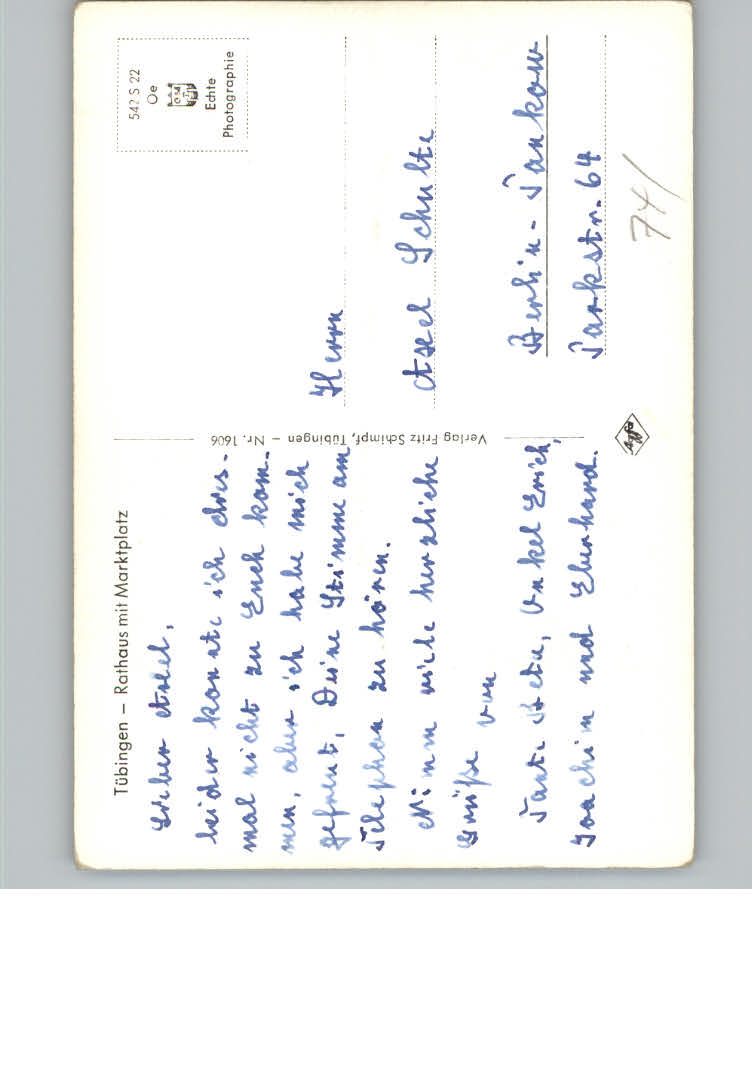 Tübingen – Rathaus mit Marktplatz
Lieber Axel,
leider konnte ich dies-
mal nicht zu Euch kom-
men, aber ich habe mich
gefreut, Deine Stimme am
Telephon zu hören.
Nimm viele herzliche
Grüße von
Tante Beta, Onkel Erich,
Joachim und Eberhard.
Verlag Fritz Schimpf, Tübingen – Nr. 1606
542 S 22
Oe
Echte
Photographie
Herrn
Axel Schulte
Berlin-Pankow
Parkstr. 64
74/
Agfa